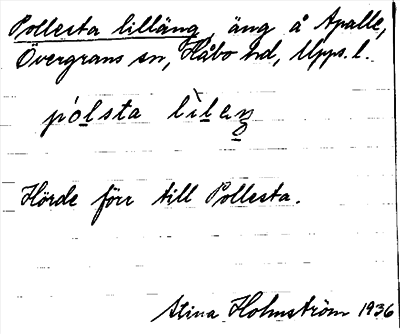 Pollesta lilläng, äng å Apalle,
Övergrans sn, Håbo hd, Upps. l.
pòlsta lìlɛŋ
Hörde förr till Pollesta.
Stina Holmström 1936